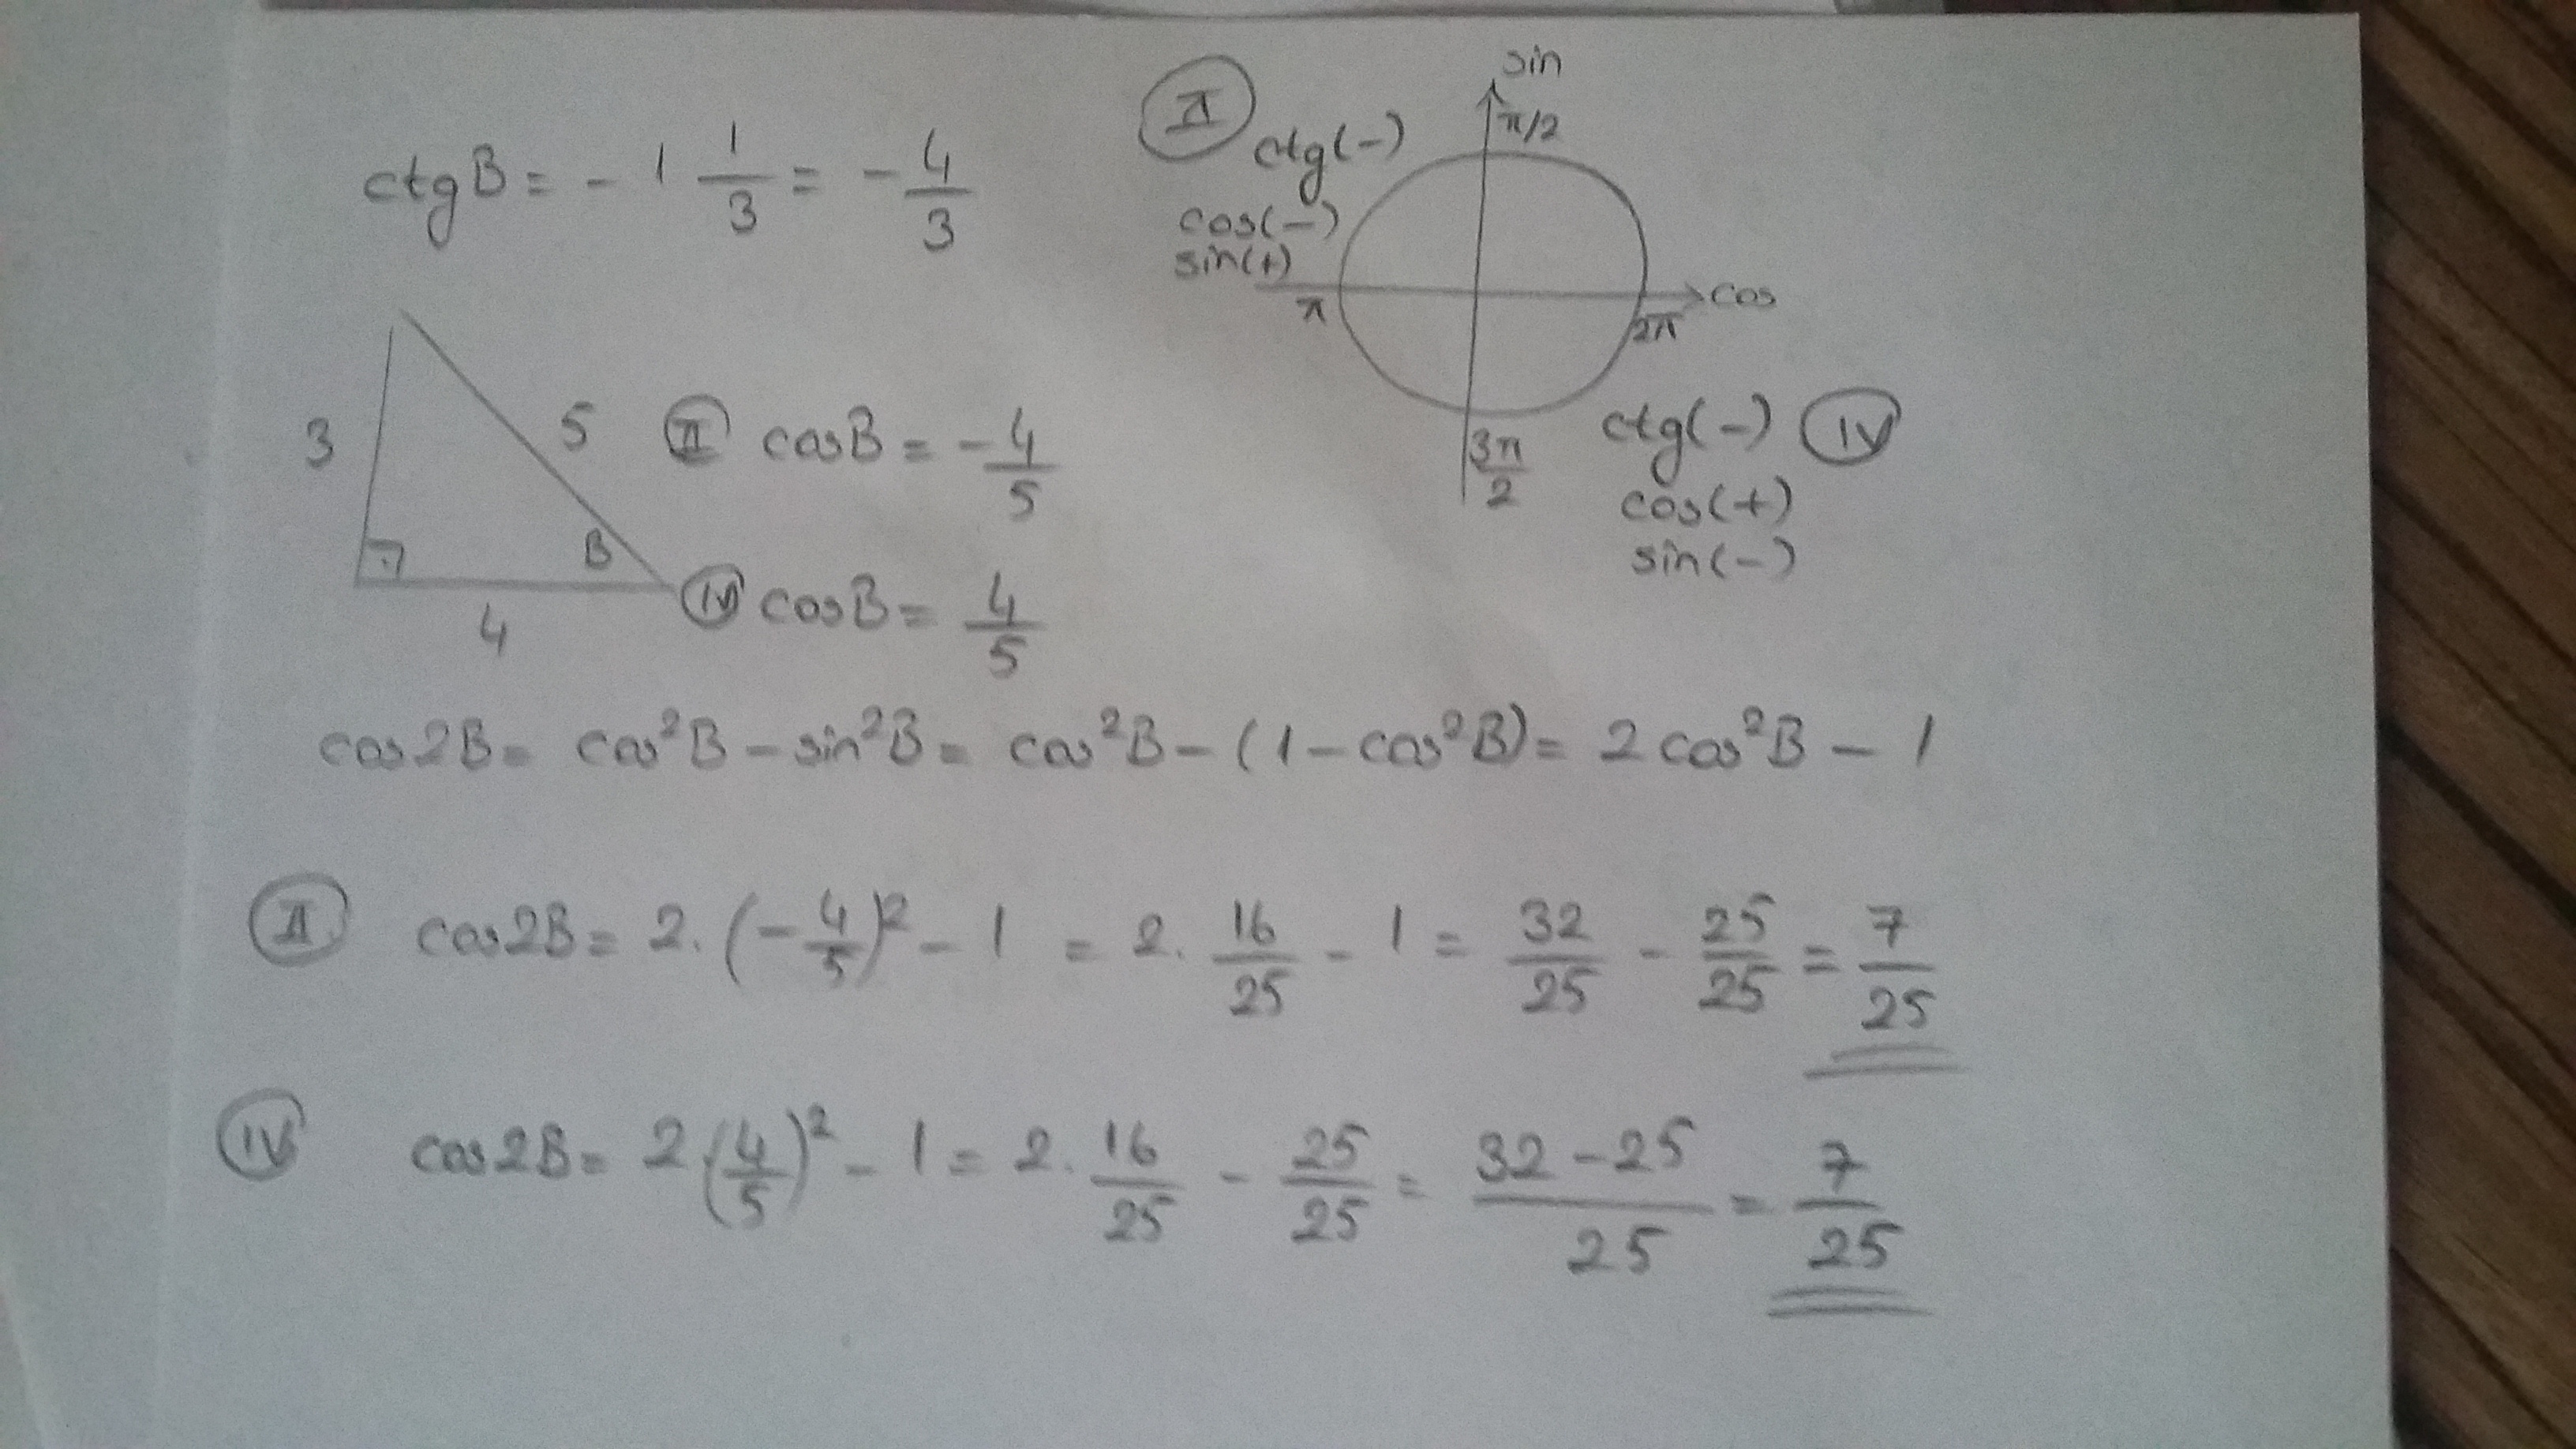 ctgB = - 1 1/3 = - 4/3
II ctg(-)
cos(-)
sin(+)
sin
π/2
cos
π
2π
3π/2
ctg(-) IV
cos(+)
sin(-)
3
5
B
4
II cosB = - 4/5
IV cosB = 4/5
cos2B = cos²B - sin²B = cos²B - (1 - cos²B) = 2 cos²B - 1
II cos2B = 2. (- 4/5)² - 1 = 2. 16/25 - 1 = 32/25 - 25/25 = 7/25
IV cos2B = 2 (4/5)² - 1 = 2. 16/25 - 25/25 = 32 - 25/25 = 7/25